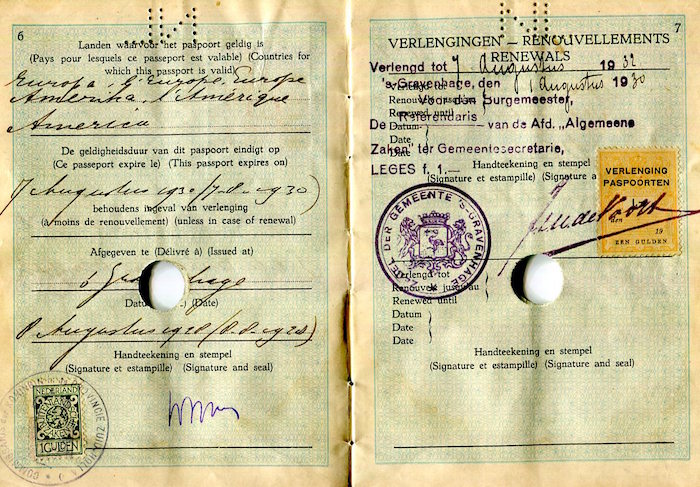 6
Landen waarvoor het paspoort geldig is
(Pays pour lesquels ce passeport est valable) (Countries for
which this passport is valid)
Europa, l'Europe, Europe
Amerika, l'Amérique
America
De geldigheidsduur van dit paspoort eindigt op
(Ce passeport expire le) (This passport expires on)
7 Augustus 1930 (7-8-1930)
behoudens ingeval van verlenging
(à moins de renouvellement) (unless in case of renewal)
Afgegeven te (Délivré à) (Issued at)
's Gravenhage
Datum (Date)
8 Augustus 1928 (8-8-1928)
Handteekening en stempel
(Signature et estampille) (Signature and seal)
NEDERLAND
1 GULDEN
7
VERLENGINGEN — RENOUVELLEMENTS
RENEWALS
Verlengd tot 7 Augustus 1932
's-Gravenhage, den 8 Augustus 1930
Renouvelé
Voor den Burgemeester,
Renewed until
Referendaris
Datum
De van de Afd. „Algemeene
Date
Zaken" ter Gemeentesecretarie,
Date
Handteekening en stempel
LEGES f. 1.—
(Signature et estampille) (Signature and seal)
VERLENGING
PASPOORTEN
19
EEN GULDEN
DER GEMEENTE 'S-GRAVENHAGE
Verlengd tot
Renouvelé jusqu'au
Renewed until
Datum
Date
Date
Handteekening en stempel
(Signature et estampille) (Signature and seal)